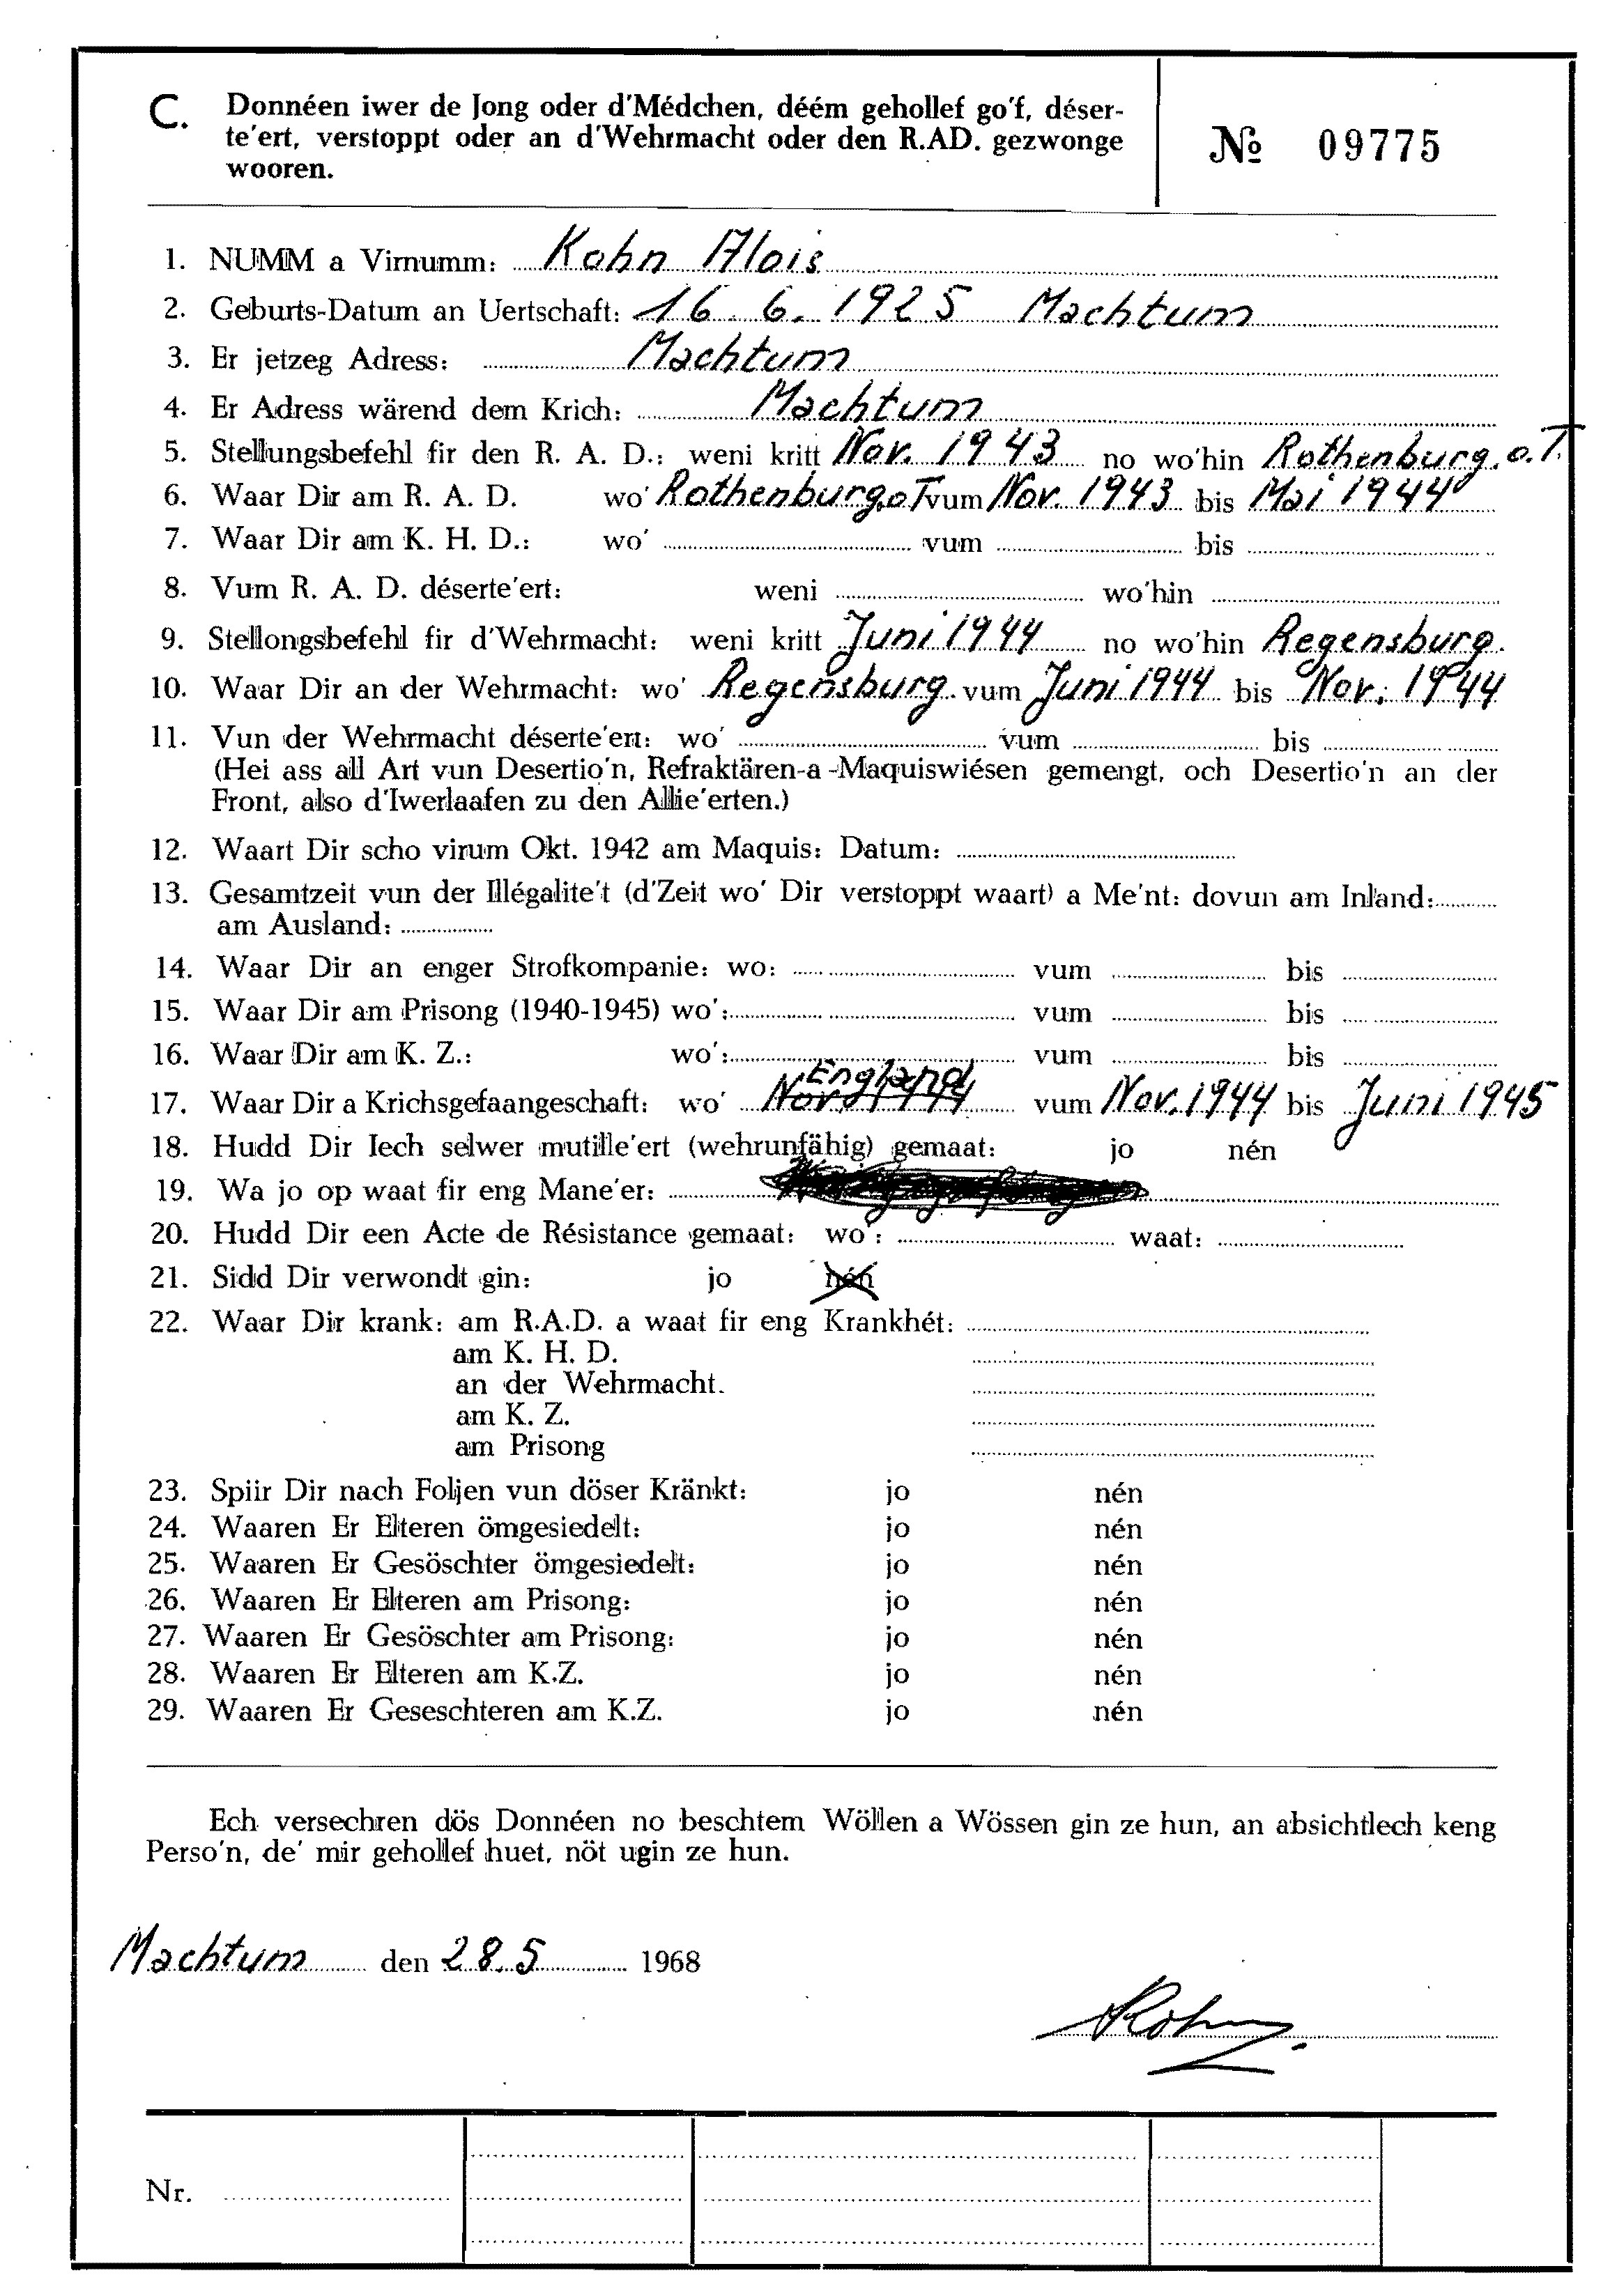 C. Donnéen iwer de Jong oder d'Médchen, déém gehollef go'f, déser-
te'ert, verstoppt oder an d'Wehrmacht oder den R.AD. gezwonge
wooren.
№ 09775
1. NUMM a Virnumm: Kohn Alois
2. Geburts-Datum an Uertschaft: 16. 6. 1925 Machtum
3. Er jetzeg Adress: Machtum
4. Er Adress wärend dem Krich: Machtum
5. Stellungsbefehl fir den R. A. D.: weni kritt Nov. 1943 no wo'hin Rothenburg. o. T.
6. Waar Dir am R. A. D. wo' Rothenburg.o T vum Nov. 1943 bis Mai 1944
7. Waar Dir am K. H. D.: wo' vum bis
8. Vum R. A. D. déserte'ert: weni wo'hin
9. Stellongsbefehl fir d'Wehrmacht: weni kritt Juni 1944 no wo'hin Regensburg.
10. Waar Dir an der Wehrmacht: wo' Regensburg. vum Juni 1944 bis Nov. 1944
11. Vun der Wehrmacht déserte'ert: wo' vum bis
(Hei ass all Art vun Desertio'n, Refraktären-a-Maquiswiésen gemengt, och Desertio'n an der
Front, also d'Iwerlaafen zu den Allie'erten.)
12. Waart Dir scho virum Okt. 1942 am Maquis: Datum:
13. Gesamtzeit vun der Illégalite't (d'Zeit wo' Dir verstoppt waart) a Me'nt: dovun am Inland:
am Ausland:
14. Waar Dir an enger Strofkompanie: wo: vum bis
15. Waar Dir am Prisong (1940-1945) wo': vum bis
16. Waar Dir am K. Z.: wo': vum bis
England
17. Waar Dir a Krichsgefaangeschaft: wo' Nov. 1944 vum Nov. 1944 bis Juni 1945
18. Hudd Dir Iech selwer mutille'ert (wehrunfähig) gemaat: jo nén
19. Wa jo op waat fir eng Mane'er:
20. Hudd Dir een Acte de Résistance gemaat: wo': waat:
21. Sidd Dir verwondt gin: jo nén
22. Waar Dir krank: am R.A.D. a waat fir eng Krankhét:
am K. H. D.
an der Wehrmacht.
am K. Z.
am Prisong
23. Spiir Dir nach Foljen vun döser Kränkt: jo nén
24. Waaren Er Elteren ömgesiedelt: jo nén
25. Waaren Er Gesöschter ömgesiedelt: jo nén
26. Waaren Er Elteren am Prisong: jo nén
27. Waaren Er Gesöschter am Prisong: jo nén
28. Waaren Er Elteren am K.Z. jo nén
29. Waaren Er Geseschteren am K.Z. jo nén
Ech versechren dös Donnéen no beschtem Wöllen a Wössen gin ze hun, an absichtlech keng
Perso'n, de' mir gehollef huet, nöt ugin ze hun.
Machtum den 28. 5 1968
Kohn
Nr.